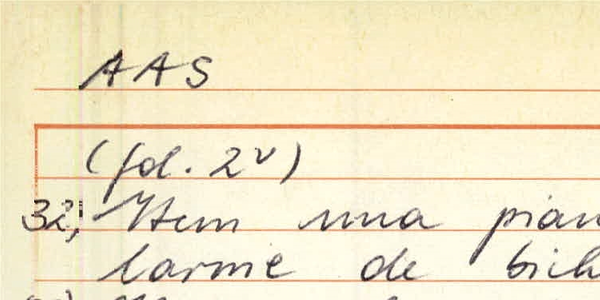 AAS
(fol. 2v)
32, Item una pian
larme de bich